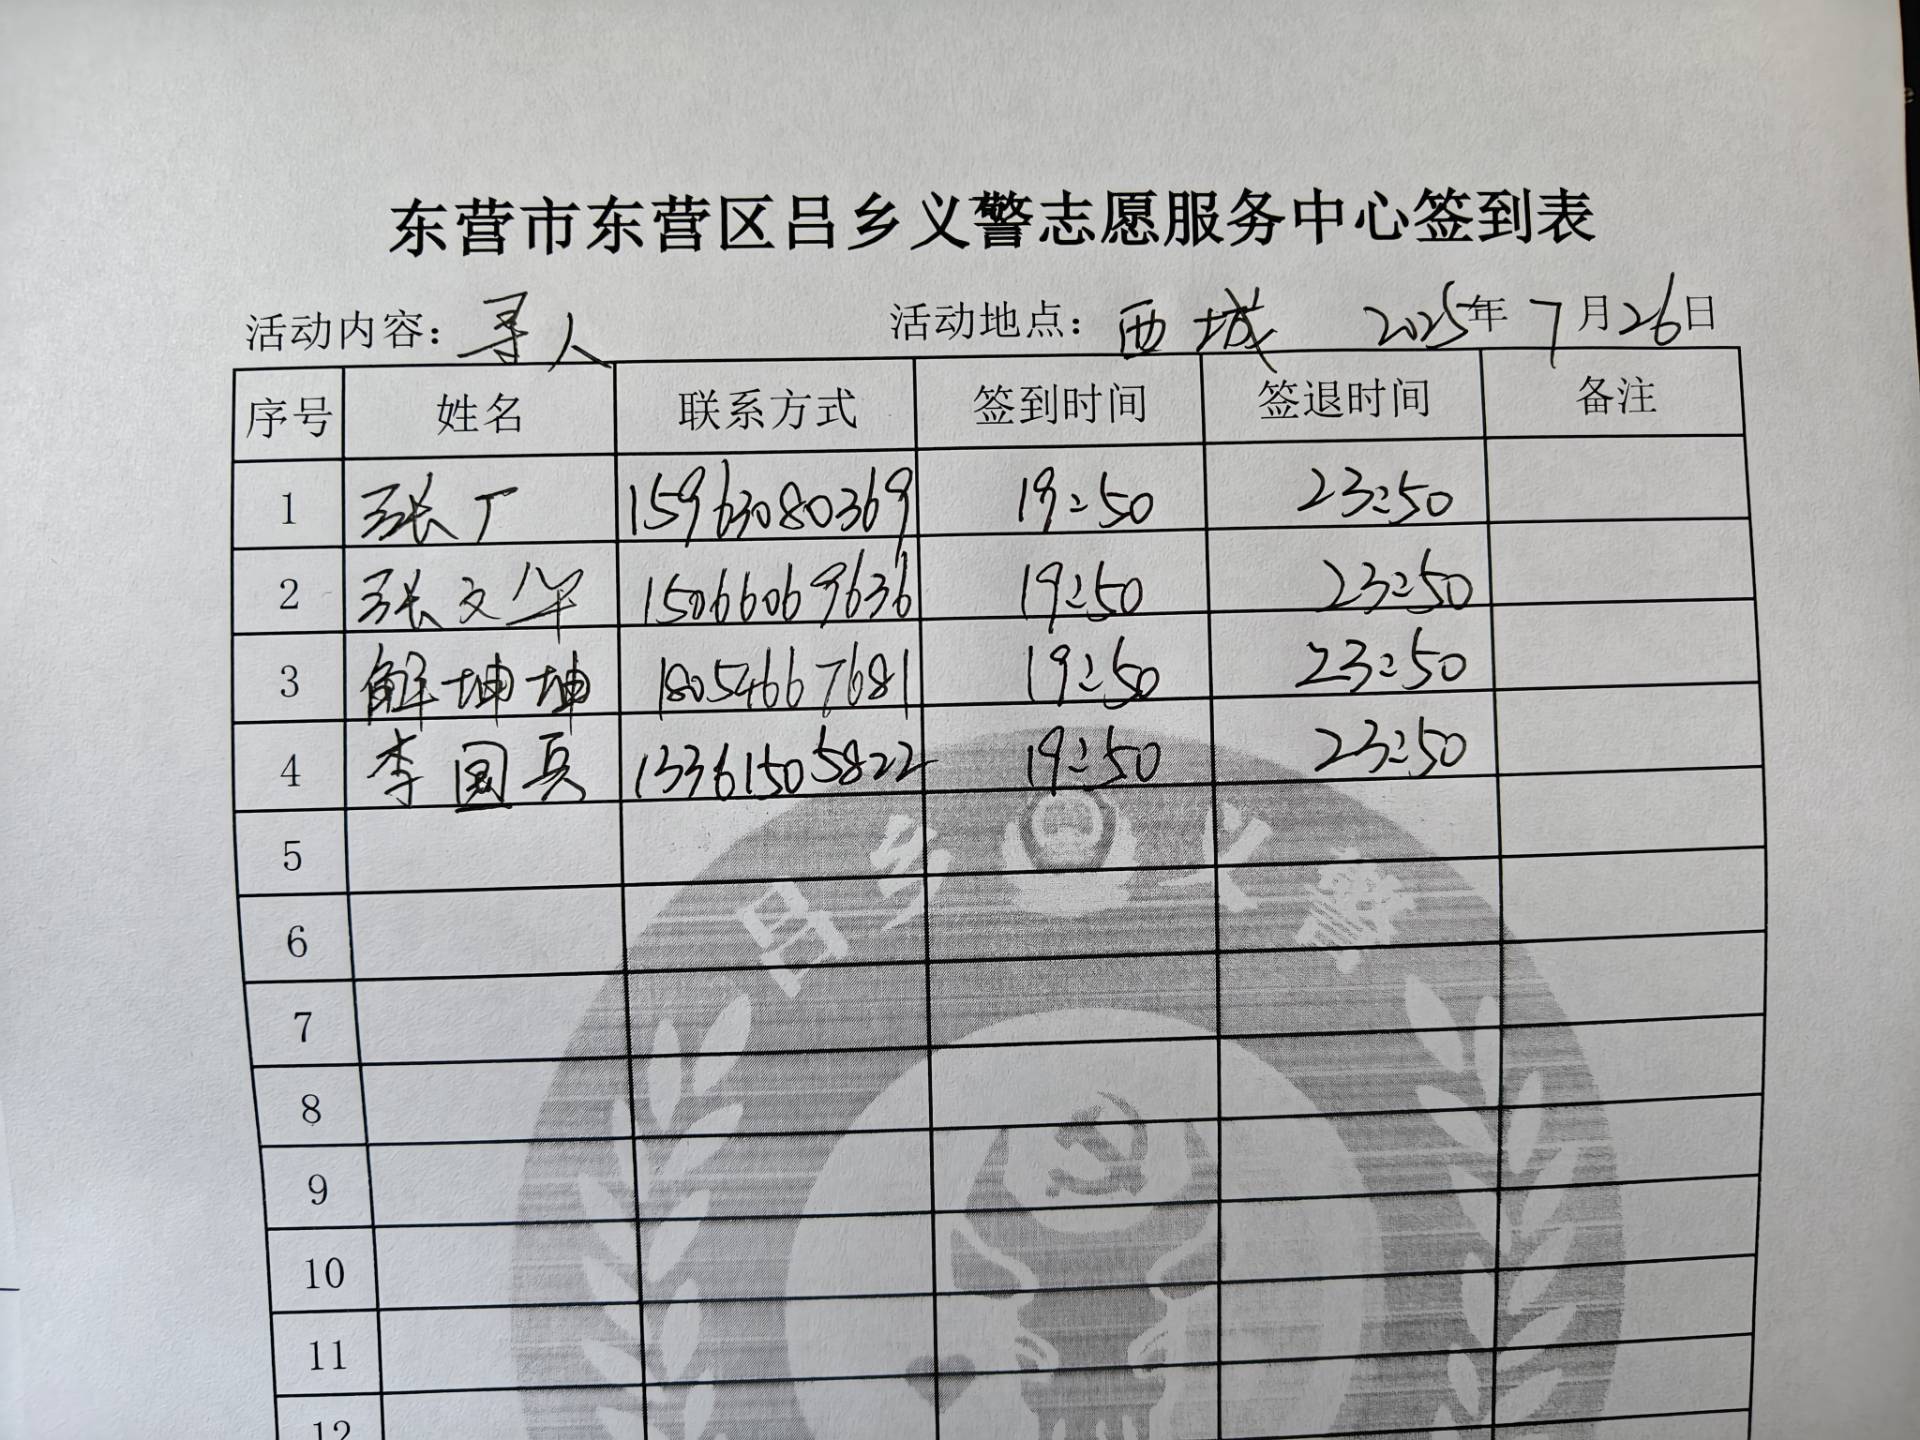 东营市东营区吕乡义警志愿服务中心签到表
活动内容：寻人 活动地点：西城 2025年7月26日
序号 姓名 联系方式 签到时间 签退时间 备注
1 张广 15963080369 19:50 23:50
2 张文华 15066069636 19:50 23:50
3 解坤坤 18054667681 19:50 23:50
4 李国兵 13361505822 19:50 23:50
5
6
7
8
9
10
11
12
吕乡义警